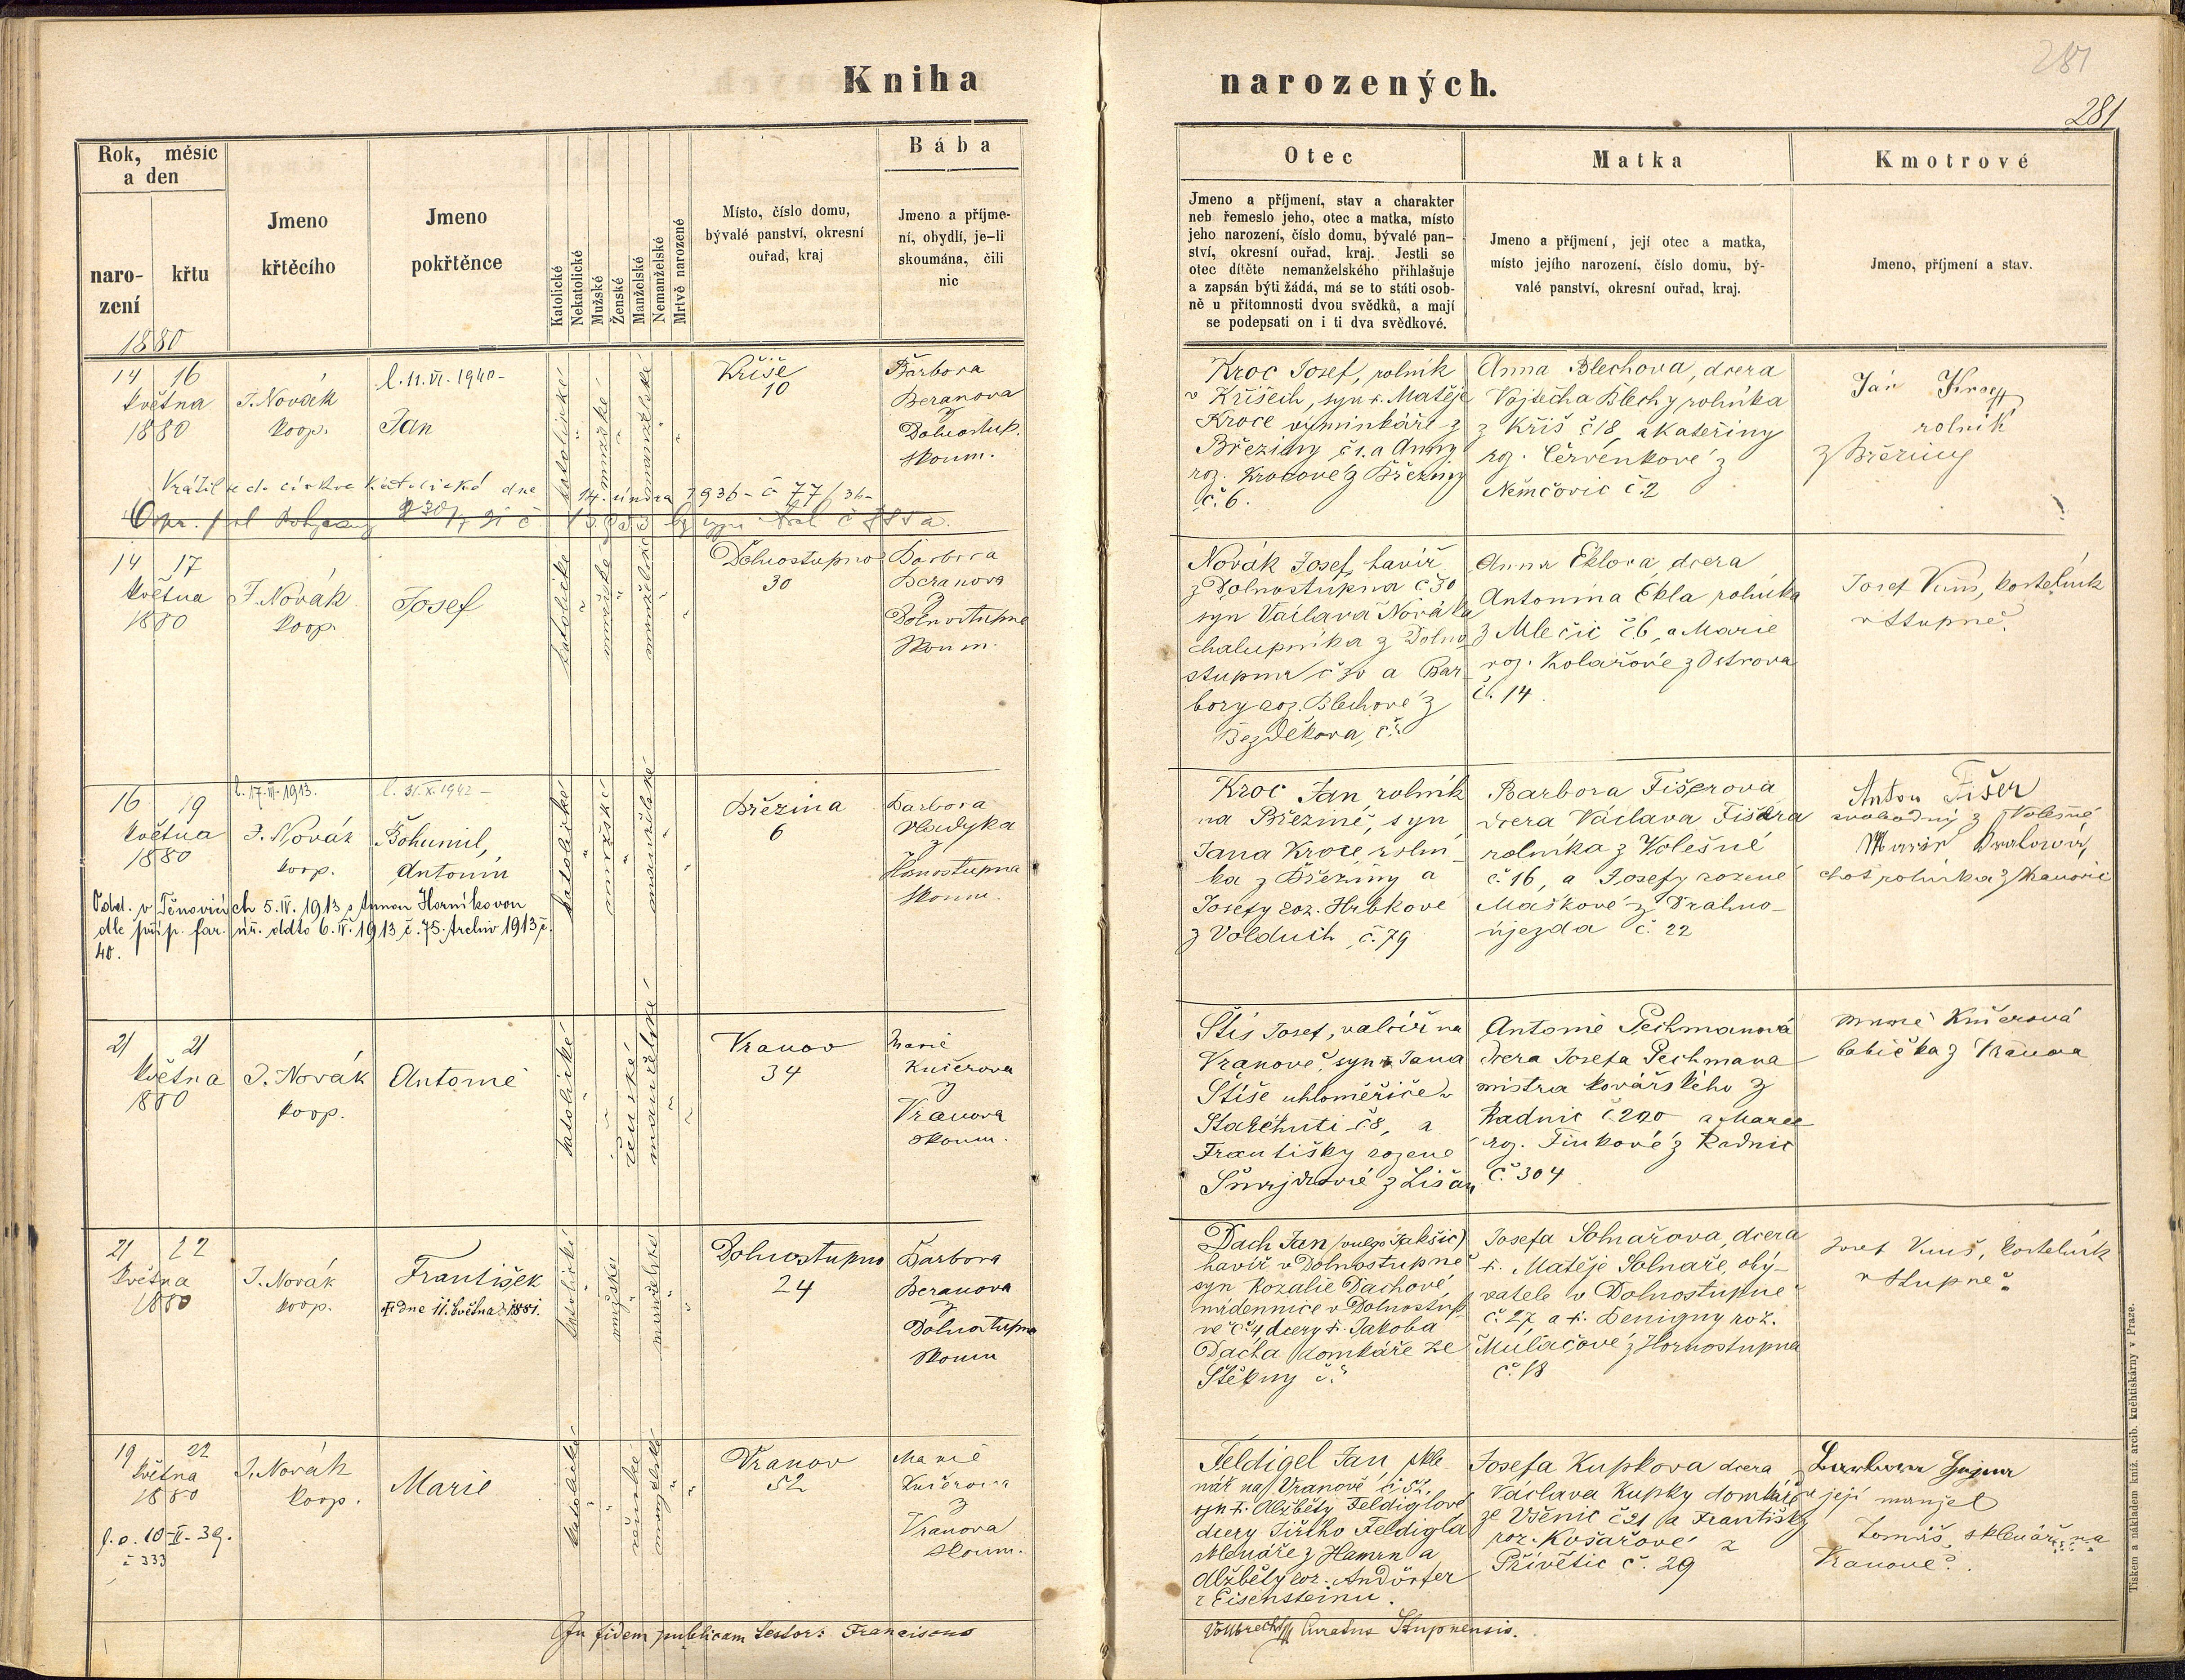 Kniha narozených.
281
281
Rok, měsíc
a den
naro-
zení
křtu
Jmeno
křtěcího
Jmeno
pokřtěnce
Katolické
Nekatolické
Mužské
Ženské
Manželské
Nemanželské
Mrtvě narozené
Místo, číslo domu,
bývalé panství, okresní
ouřad, kraj
Bába
Jmeno a příjme-
ní, obydlí, je-li
skoumána, čili
nic
Otec
Jmeno a příjmení, stav a charakter
neb řemeslo jeho, otec a matka, místo
jeho narození, číslo domu, bývalé pan-
ství, okresní ouřad, kraj. Jestli se
otec dítěte nemanželského přihlašuje
a zapsán býti žádá, má se to státi osob-
ně u přítomnosti dvou svědků, a mají
se podepsati on i ti dva svědkové.
Matka
Jmeno a příjmení, její otec a matka,
místo jejího narození, číslo domu, bý-
valé panství, okresní ouřad, kraj.
Kmotrové
Jmeno, příjmení a stav.
1880
14 16
května
1880
J. Novák
koop.
l. 11. VI. 1940-
Jan
katolické
mužské
manželské
Kříše
10
Barbora
Beranova
z
Dolnostup.
skoum.
Kroc Josef, rolník
v Kříších, syn Matěje
Kroce výminkáře z
Březiny č 1. a Anny
roz. Krocové z Březiny
č. 6.
Anna Blechova, dcera
Vojtěcha Blechy rolníka
z Kříš č 18, a Kateřiny
roz. Červenkové z
Němčovic č. 2
Jan Kroc
rolník
z Březiny
Vrátil se do církve katolické dne 14. února 1936 - č 77/36-
14 17
května
1880
J. Novák
koop.
Josef
katolické
mužské
manželské
Dolnostupno
30
Barbora
Beranova
z
Dolnostupna
skoum.
Novák Josef, havíř
z Dolnostupna č 30
syn Václava Nováka
chalupníka z Dolno
stupna č 30 a Bar
bory roz. Blechové z
Bezděkova, č.
Anna Eklova, dcera
Antonína Ekla rolníka
z Mlečic č 6, a Marie
roz. Kolařové z Ostrova
č. 14.
Josef Kuns, kostelník
v Stupně.
16 19
května
1880
l. 17. III. 1913.
J. Novák
koop.
l. 31. X. 1942 -
Bohumil,
Antonín
Odd. v Těnovicích 5. IV. 1913 s Annou Horníkovou
dle příp. far. úř. ddto 6. IV. 1913 č. 75. Archiv 1913 č.
40.
katolické
mužské
manželské
Březina
6
Barbora
Vladyka
z
Hornostupna
skoum.
Kroc Jan, rolník
na Březině, syn
Jana Kroce rolní-
ka z Březiny a
Josefy roz. Hrbkové
z Volduch, č. 79
Barbora Fišerova
dcera Václava Fišera
rolníka z Volešné
č. 16, a Josefy rozené
Maškové z Drahno-
újezda č. 22
Anton Fišer
svobodný z Volešné
Marie
choť rolníka z
21 21
května
1880
J. Novák
koop.
Antonie
katolické
ženské
manželské
Vranov
34
Marie
Kučerova
z
Vranova
skoum.
Štís Josef, na
Vranově, syn Jana
Štíse uhloměřiče v
Starehuti č 8, a
Františky rozené
z Lišan
Antonie Pechmanová
dcera Josefa Pechmana
mistra kovářského z
Radnic č. 220 a Marie
roz. Finkové z Radnic
č. 304
Marie Kučerová
babička z Vranova
21 22
května
1880
J. Novák
koop.
František
† dne 11. května 1881.
katolické
mužské
manželské
Dolnostupno
24
Barbora
Beranova
z
Dolnostupna
skoum
Dach Jan (vulgo Jakšic)
havíř v Dolnostupně
syn Rozalie Dachové
nádennice v Dolnostup
ně č. 4 dcery Jakoba
Dacha domkáře ze
Štěkny č.
Josefa Solnařova, dcera
Matěje Solnaře, oby-
vatele v Dolnostupně
č. 27, a Benigny roz.
Muláčové z Hornostupna
č. 18
Josef Kuns, kostelník
v Stupně.
19 22
května
1880
l. o. 10-II-39.
č 333
J. Novák
koop.
Marie
katolické
ženské
manželské
Vranov
52
Marie
Kučerova
z
Vranova
skoum.
Feldigel Jan, skle
nář na Vranově č 52,
syn Alžběty Feldiglové
dcery Jiřího Feldigla
sklenáře z Hamrn a
Alžběty roz. Andörfer
z Eisensteinu.
Josefa Kupkova dcera
Václava Kupky domkáře
ze Všenic č 21 a Františky
roz. Košařové z
Přívětic č. 29
Barbora
a její manžel
Tomáš, sklenář na
Vranově.
In fidem publicam testor: Franciscus
Vollbrecht Curatus Stupnensis.
Tiskem a nákladem kníž. arcib. kněhtiskárny v Praze.